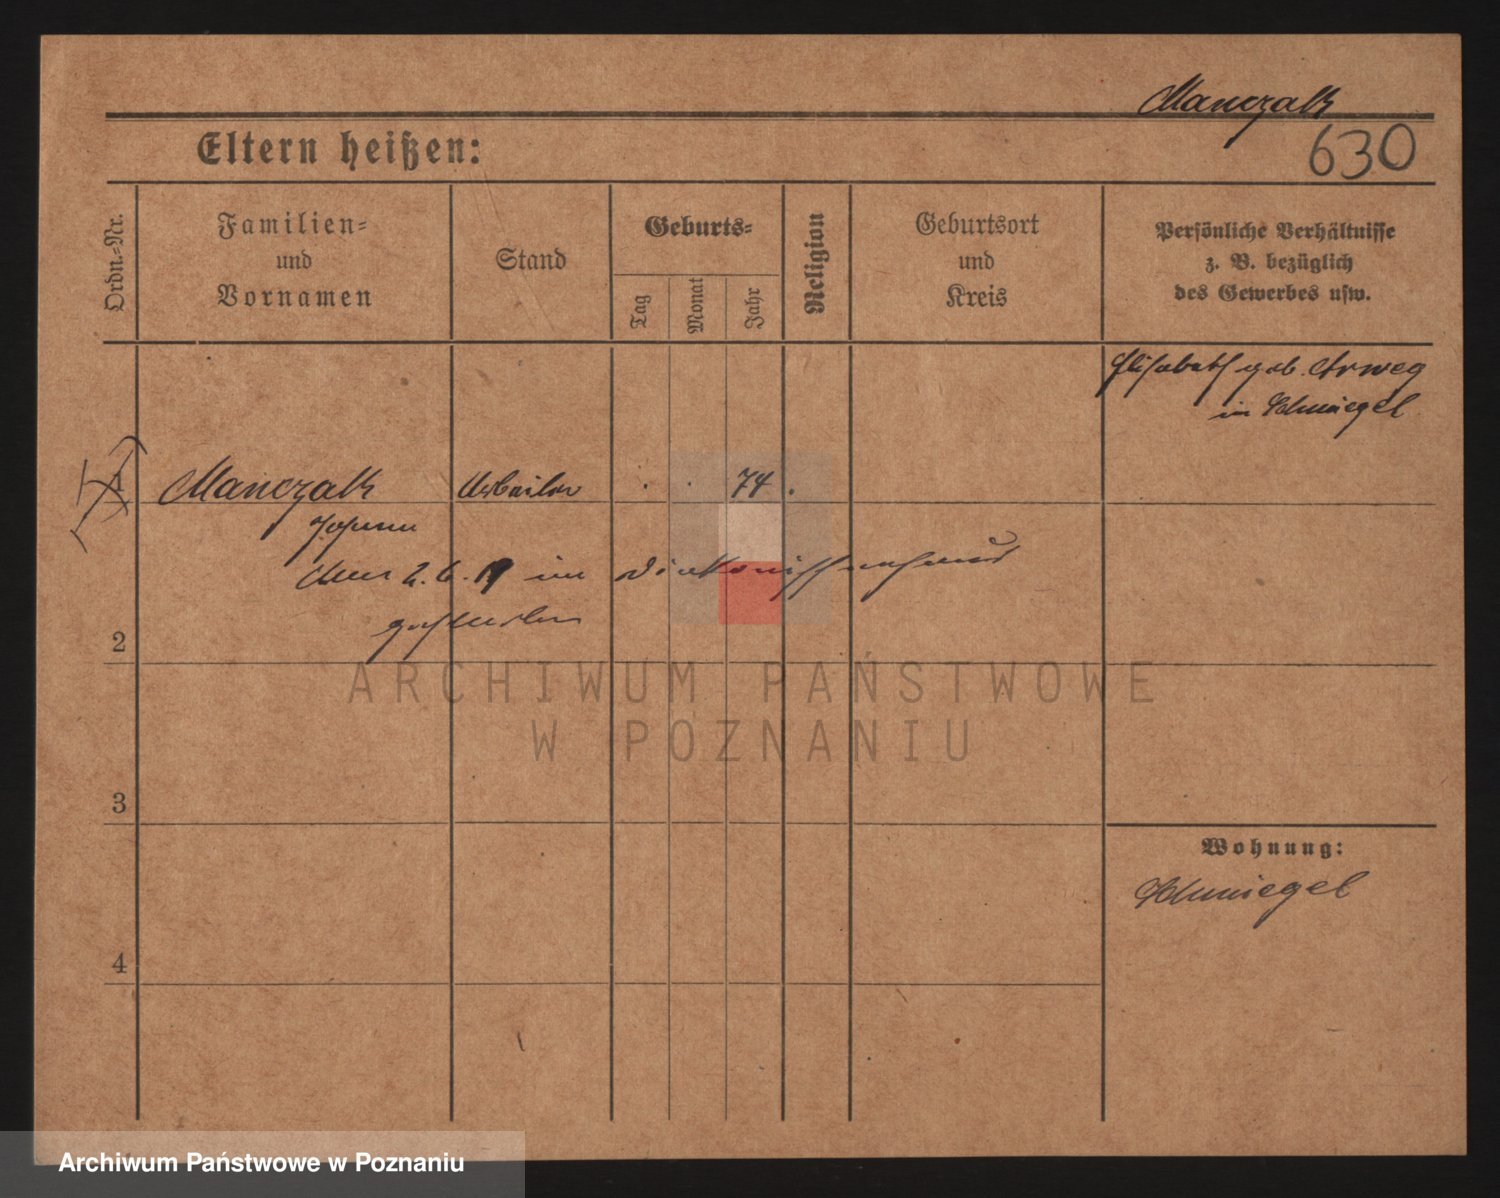 Manczak
630
Eltern heißen:
Ordn.-Nr.
Familien-
und
Vornamen
Stand
Geburts-
Tag
Monat
Jahr
Religion
Geburtsort
und
Kreis
Persönliche Verhältnisse
z. B. bezüglich
des Gewerbes usw.
Elisabeth geb.
in Schmiegel
1 Manczak Arbeiter . . 74 .
Johann
2. 6. im Diakonissenhaus
gestorben
2
3
4
Wohnung:
Schmiegel
ARCHIWUM PAŃSTWOWE
W POZNANIU
Archiwum Państwowe w Poznaniu